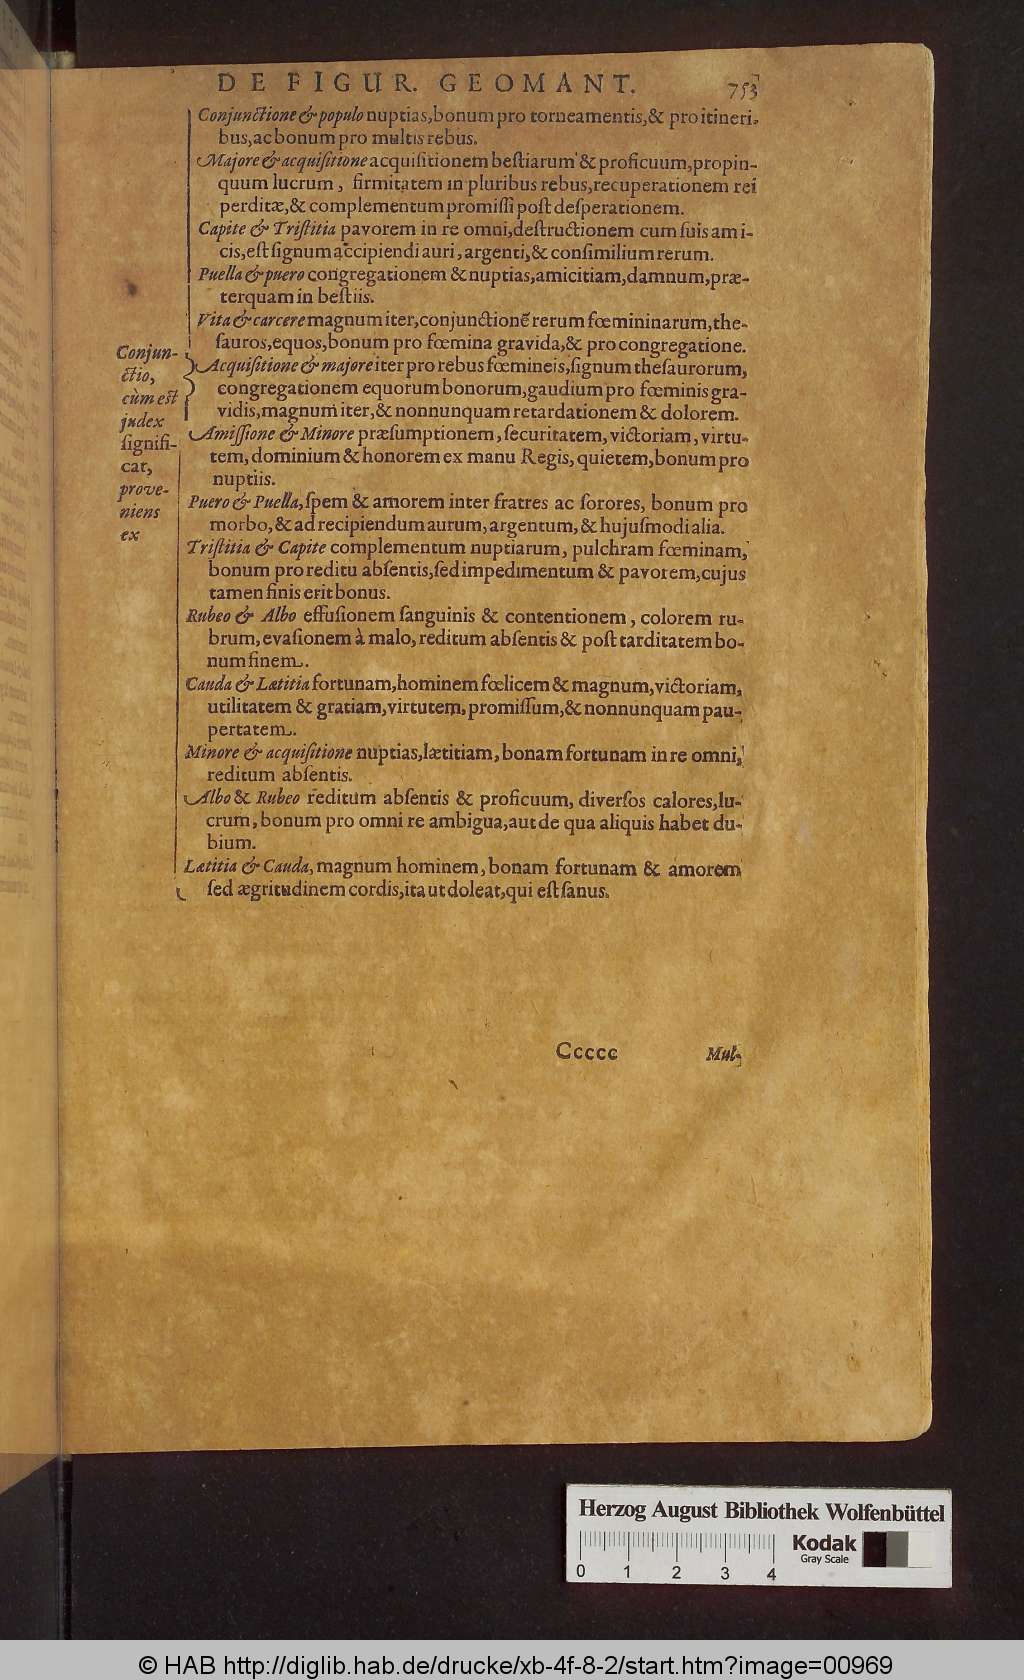 DE FIGUR. GEOMANT. 753
Conjunctione & populo nuptias, bonum pro torneamentis, & pro itineri-
bus, ac bonum pro multis rebus.
Majore & acquiſitione acquiſitionem beſtiarum & proficuum, propin-
quum lucrum, firmitatem in pluribus rebus, recuperationem rei
perditæ, & complementum promiſſi poſt deſperationem.
Capite & Triſtitia pavorem in re omni, deſtructionem cum ſuis ami-
cis, eſt ſignum accipiendi auri, argenti, & conſimilium rerum.
Puella & puero congregationem & nuptias, amicitiam, damnum, præ-
terquam in beſtiis.
Vita & carcere magnum iter, conjunctionē rerum fœmininarum, the-
ſauros, equos, bonum pro fœmina gravida, & pro congregatione.
Acquiſitione & majore iter pro rebus fœmineis, ſignum theſaurorum,
congregationem equorum bonorum, gaudium pro fœminis gra-
vidis, magnum iter, & nonnunquam retardationem & dolorem.
Amiſſione & Minore præſumptionem, ſecuritatem, victoriam, virtu-
tem, dominium & honorem ex manu Regis, quietem, bonum pro
nuptiis.
Puero & Puella, ſpem & amorem inter fratres ac ſorores, bonum pro
morbo, & ad recipiendum aurum, argentum, & hujuſmodi alia.
Triſtitia & Capite complementum nuptiarum, pulchram fœminam,
bonum pro reditu abſentis, ſed impedimentum & pavorem, cujus
tamen finis erit bonus.
Rubeo & Albo effuſionem ſanguinis & contentionem, colorem ru-
brum, evaſionem à malo, reditum abſentis & poſt tarditatem bo-
num finem.
Cauda & Lætitia fortunam, hominem fœlicem & magnum, victoriam,
utilitatem & gratiam, virtutem, promiſſum, & nonnunquam pau-
pertatem.
Minore & acquiſitione nuptias, lætitiam, bonam fortunam in re omni,
reditum abſentis.
Albo & Rubeo reditum abſentis & proficuum, diverſos calores, lu-
crum, bonum pro omni re ambigua, aut de qua aliquis habet du-
bium.
Lætitia & Cauda, magnum hominem, bonam fortunam & amorem
ſed ægritudinem cordis, ita ut doleat, qui eſt ſanus.
Conjun-
ctio,
cùm eſt
judex
ſignifi-
cat,
prove-
niens
ex
Ccccc Mul-
Herzog August Bibliothek Wolfenbüttel
0 1 2 3 4
Kodak
Gray Scale
© HAB http://diglib.hab.de/drucke/xb-4f-8-2/start.htm?image=00969